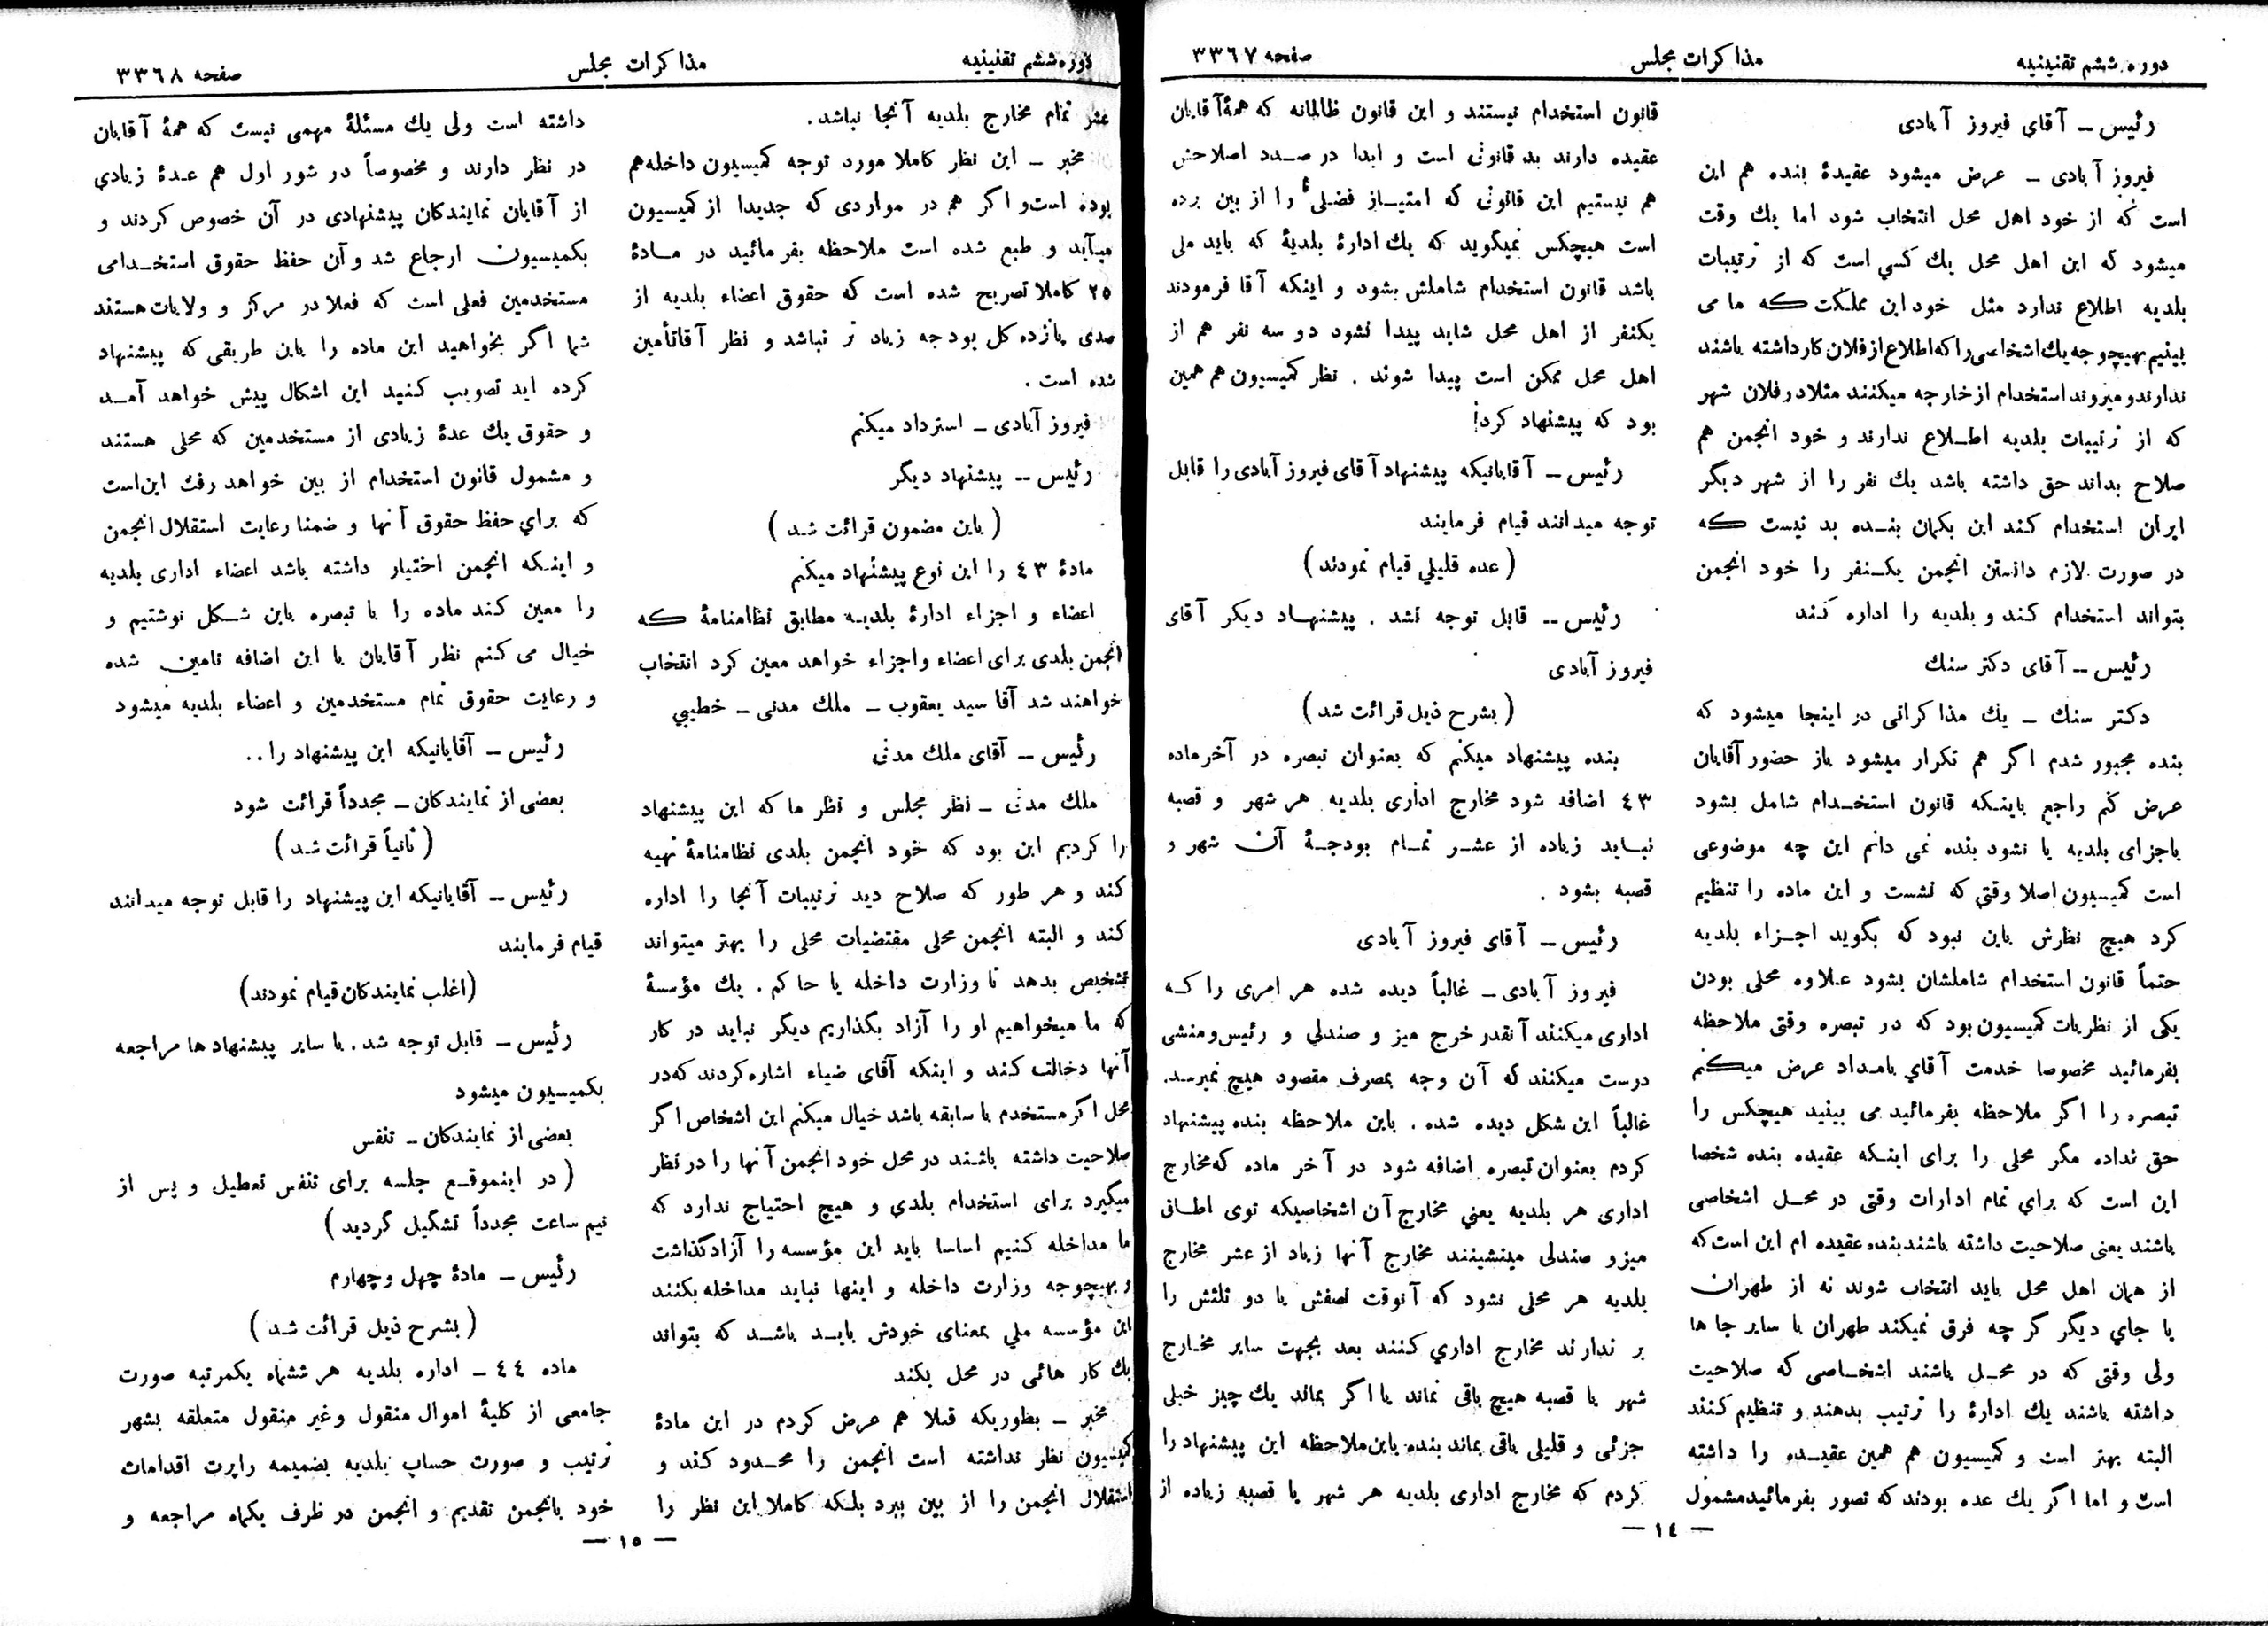 دوره ششم تقنینیه
مذاکرات مجلس
صفحه ٣٣٦٧
رئیس ــ آقای فیروز آبادی
فیروز آبادی ــ عرض میشود عقیدهٔ بنده هم این
است که از خود اهل محل انتخاب شود اما یك وقت
میشود که این اهل محل یك کسی است که از ترتیبات
بلدیه اطلاع ندارد مثل خود این مملکت که ما می
بینیم بهیچوجه یك اشخاصی را که اطلاع از فلان کار داشته باشند
ندارند و میروند استخدام از خارجه میکنند مثلا در فلان شهر
که از ترتیبات بلدیه اطـلاع ندارند و خود انجمن هم
صلاح بداند حق داشته باشد یك نفر را از شهر دیگر
ایران استخدام کند این بگمان بنـده بد نیست که
در صورت لازم دانستن انجمن یکـنفر را خود انجمن
بتواند استخدام کند و بلدیه را اداره کـند
رئیس ــ آقای دکتر سنك
دکـتر سنك ــ یك مذاکراتی در اینجا میشود که
بنده مجبور شدم اگر هم تکرار میشود باز حضور آقایان
عرض کنم راجع باینکه قانون استخـدام شامل بشود
باجزای بلدیه یا نشود بنده نمی دانم این چه موضوعی
است کمیسیون اصلا وقتی که نشست و این ماده را تنظیم
کرد هیچ نظرش باین نبود که بگوید اجـزاء بلدیه
حتماً قانون استخدام شاملشان بشود علاوه محلی بودن
یکی از نظریات کمیسیون بود که در تبصره وقتی ملاحظه
بفرمائید مخصوصا خدمت آقای بامداد عرض میکنم
تبصره را اگر ملاحظه بفرمائید می بینید هیچکس را
حق نداده مگر محلی را برای اینکه عقیده بنده شخصا
این است که برای تمام ادارات وقتی در محـل اشخاصی
باشند یعنی صلاحیت داشته باشند بنده عقیده ام این است که
از همان اهل محل باید انتخاب شوند نه از طهران
یا جای دیگر گر چه فرق نمیکند طهران یا سایر جا ها
ولی وقتی که در محـل باشند اشخـاصی که صلاحیت
داشته باشند یك ادارهٔ را ترتیب بدهند و تنظیم کنند
البته بهتر است و کمیسیون هم همین عقیـده را داشته
است و اما اگر یك عده بودند که تصور بفرمائید مشمول
قانون استخدام نیستند و این قانون ظالمانه که همهٔ آقایان
عقیده دارند بد قانونی است و ابدا در صـدد اصلاحش
هم نیستیم این قانونی که امتیـاز فضلی را از بین برده
است هیچکس نمیگوید که یك ادارهٔ بلدیهٔ که باید ملی
باشد قانون استخدام شاملش بشود و اینکه آقا فرمودند
یکنفر از اهل محل شاید پیدا نشود دو سه نفر هم از
اهل محل ممکن است پیدا شوند . نظر کمیسیون هم همین
بود که پیشنهاد کرد!
رئیس ــ آقایانیکه پیشنهاد آقای فیروز آبادی را قابل
توجه میدانند قیام فرمایند
( عده قلیلی قیام نمودند )
رئیس ــ قابل توجه نشد . پیشنهـاد دیکر آقای
فیروز آبادی
( بشرح ذیل قرائت شد )
بنده پیشنهاد میکنم که بعنوان تبصره در آخر ماده
٤٣ اضافه شود مخارج اداری بلدیه هر شهر و قصبه
نبـاید زیاده از عشـر تمـام بودجـهٔ آن شهر و
قصبه بشود .
رئیس ــ آقای فیروز آبادی
فیروز آبادی ــ غالباً دیده شده هر امری را که
اداری میکنند آنقدر خرج میز و صندلی و رئیس و منشی
درست میکنند که آن وجه بمصرف مقصود هیچ نمیرسد.
غالباً این شکل دیده شده . باین ملاحظه بنده پیشنهاد
کردم بعنوان تبصره اضافه شود در آخر ماده که مخارج
اداری هر بلدیه یعنی مخارج آن اشخاصیکه توی اطـاق
میزو صندلی مینشینند مخارج آنها زیاد از عشر مخارج
بلدیه هر محلی نشود که آنوقت نصفش یا دو ثلثش را
بر ندارند مخارج اداری کنند بعد بجهت سایر مخـارج
شهر یا قصبه هیچ باقی نماند یا اگر بماند یك چیز خیلی
جزئی و قلیلی باقی بماند بنده باین ملاحظه این پیشنهاد را
کردم که مخارج اداری بلدیه هر شهر یا قصبه زیاده از
ــ ١٤ ــ
دوره ششم تقنینیه
مذاکرات مجلس
صفحه ٣٣٦٨
عشر تمام مخارج بلدیه آنجا نباشد.
مخبر ــ این نظر کاملا مورد توجه کمیسیون داخله هم
بوده است و اگر هم در مواردی که جدیدا از کمیسیون
میآید و طبع شده است ملاحظه بفرمائید در مـادهٔ
٢٥ کاملا تصریح شده است که حقوق اعضاء بلدیه از
صدی پانزده کل بودجه زیاد تر نباشد و نظر آقا تأمین
شده است .
فیروز آبادی ــ استرداد میکنم
رئیس ــ پیشنهاد دیگر
( باین مضمون قرائت شـد )
مادهٔ ٤٣ را این نوع پیشنهاد میکنم
اعضاء و اجزاء ادارهٔ بلدیـه مطابق نظامنامهٔ که
انجمن بلدی برای اعضاء و اجزاء خواهد معین کرد انتخاب
خواهند شد آقا سید یعقوب ــ ملك مدنی ــ خطیبی
رئیس ــ آقای ملك مدنی
ملك مدنی ــ نظر مجلس و نظر ما که این پیشنهاد
را کردیم این بود که خود انجمن بلدی نظامنامهٔ تهیه
کند و هر طور که صلاح دید ترتیبات آنجا را اداره
کند و البته انجمن محلی مقتضیات محلی را بهتر میتواند
تشخیص بدهد تا وزارت داخله یا حاکم . یك مؤسسهٔ
که ما میخواهیم او را آزاد بگذاریم دیگر نباید در کار
آنها دخالت کند و اینکه آقای ضیاء اشاره کردند که در
محل اگر مستخدم با سابقه باشد خیال میکنم این اشخاص اگر
صلاحیت داشته باشند در محل خود انجمن آنها را در نظر
میگیرد برای استخدام بلدی و هیچ احتیاج ندارد که
ما مداخله کنیم اساسا باید این مؤسسه را آزاد گذاشت
و بهیچوجه وزارت داخله و اینها نباید مداخله بکنند
این مؤسسه ملی بمعنای خودش بایـد باشـد که بتواند
یك کار هائی در محل بکند
مخبر ــ بطوریکه قبلا هم عرض کردم در این مادهٔ
کمیسیون نظر نداشته است انجمن را محـدود کند و
استقلال انجمن را از بین ببرد بلـکه کاملا این نظر را
داشته است ولی یك مسئلهٔ مهمی نیست که همهٔ آقایان
در نظر دارند و مخصوصاً در شور اول هم عـدهٔ زیادی
از آقایان نمایندکان پیشنهادی در آن خصوص کردند و
بکمیسیون ارجاع شد و آن حفظ حقوق استخـدامی
مستخدمین فعلی است که فعلا در مرکز و ولایات هستند
شما اگر بخواهید این ماده را باین طریقی که پیشنهاد
کرده اید تصویب کنید این اشکال پیش خواهد آمـد
و حقوق یك عدهٔ زیادی از مستخدمین که محلی هستند
و مشمول قانون استخدام از بین خواهد رفت این است
که برای حفظ حقوق آنها و ضمنا رعایت استقلال انجمن
و اینـکه انجمن اختیار داشته باشد اعضاء اداری بلدیه
را معین کند ماده را با تبصره باین شـکل نوشتیم و
خیال می کنم نظر آقایان با این اضافه تامین شده
و رعایت حقوق تمام مستخدمین و اعضاء بلدیه میشود
رئیس ــ آقایانیکه این پیشنهاد را..
بعضی از نمایندکان ــ مجدداً قرائت شود
( ثانیاً قرائت شـد )
رئیس ــ آقایانیکه این پیشنهاد را قابل توجه میدانند
قیام فرمایند
(اغلب نمایندکان قیام نمودند)
رئیس ــ قابل توجه شد . با سایر پیشنهاد ها مراجعه
بکمیسیون میشود
بعضی از نمایندکان ــ تنفس
( در اینموقـع جلسه برای تنفس تعطیل و پس از
نیم ساعت مجدداً تشگیل گردید )
رئیس ــ مادهٔ چهل و چهارم
( بشرح ذیل قرائت شـد )
ماده ٤٤ ــ اداره بلدیه هر ششماه یکمرتبه صورت
جامعی از کلیهٔ اموال منقول و غیر منقول متعلقه بشهر
ترتیب و صورت حساب بلدیه بضمیمه راپرت اقدامات
خود بانجمن تقدیم و انجمن در ظرف یکماه مراجعه و
ــ ١٥ ــ